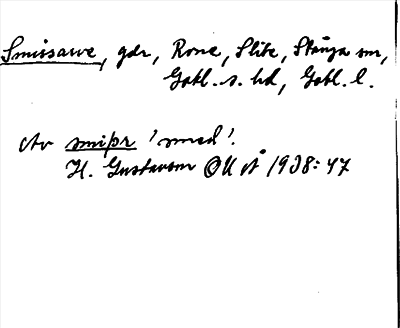 Smissarve, gdr, Rone, Slite, Stånga sn,
Gotl. s. hd, Gotl. l.
Av smiþr 'smed'.
H. Gustavson OUÅ 1938:47